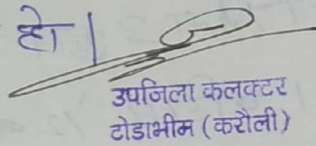 हो।
उपजिला कलक्टर
टोडाभीम (करौली)